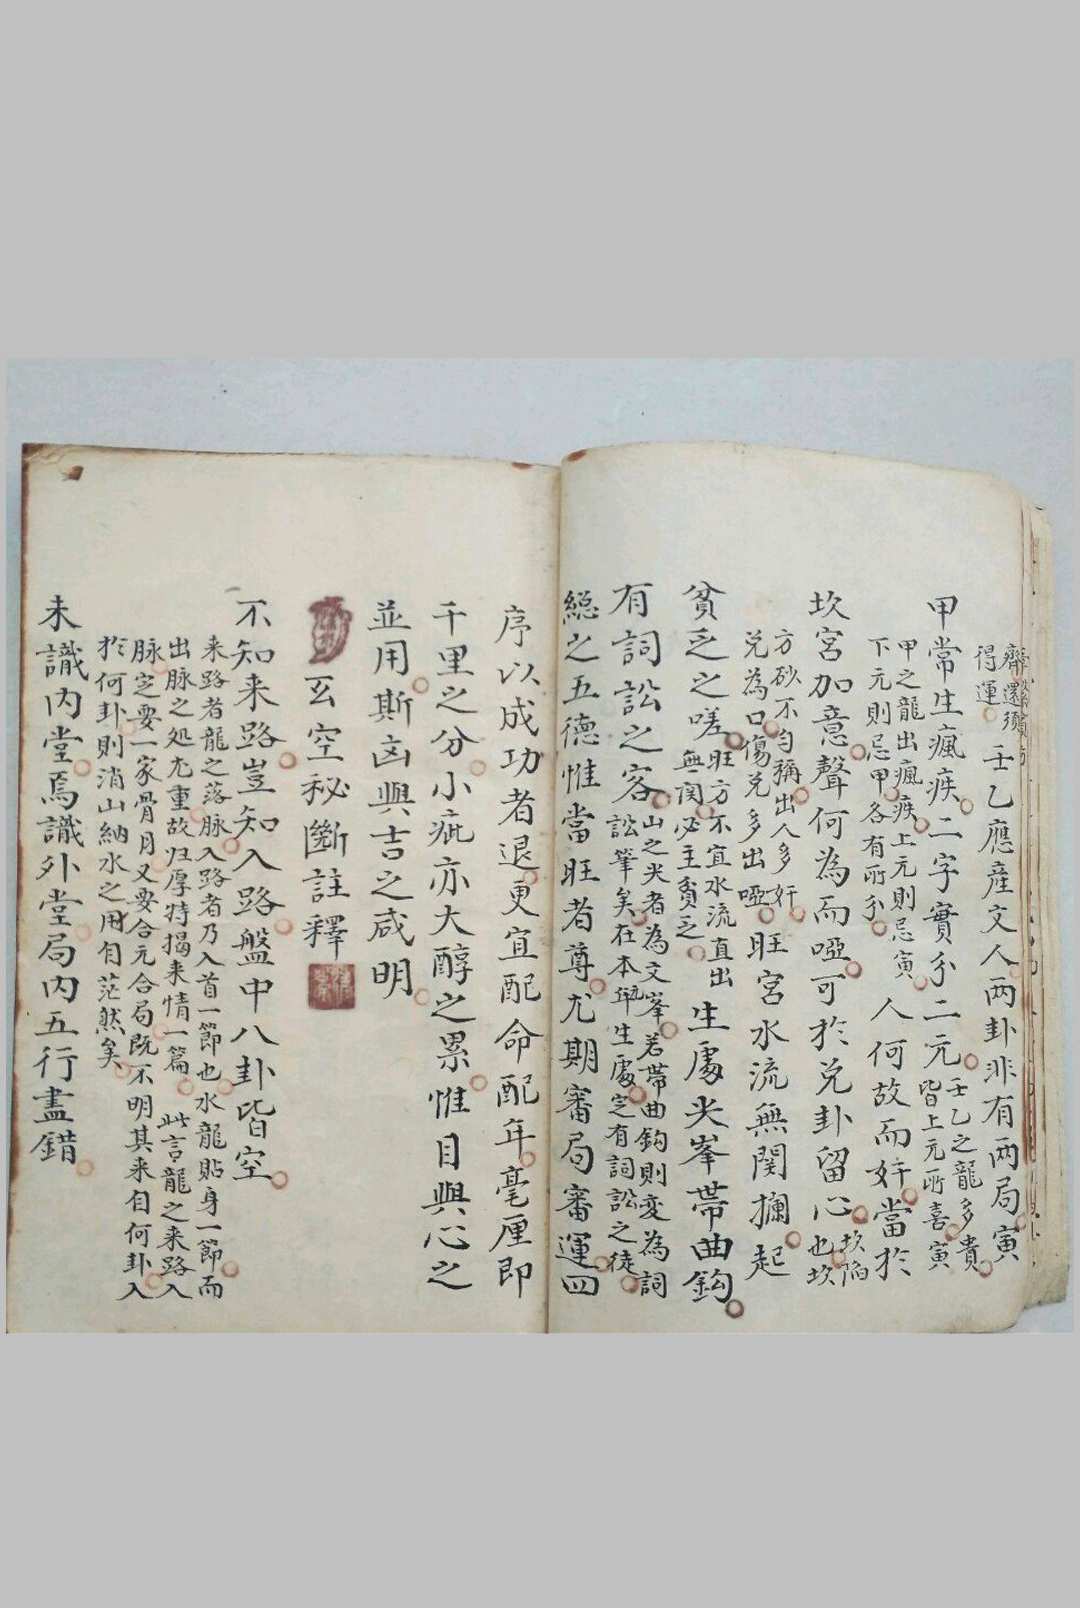 齊還須
得運
壬乙應產文人两卦非有两局寅
甲常生瘋疾二字實分二元
壬乙之龍多貴
皆上元所喜寅
甲之龍出瘋疾上元則忌寅
下元則忌甲各有所分
人何故而奸當於
坎宮加意聾何為而啞可於兌卦留心
坎陷
也坎
方砂不勻稱出人多奸
兌為口傷兌多出啞
旺宮水流無関攔起
貧乏之嗟
旺方不宜水流直出
無関必主貧乏
生處尖峯帶曲鈎
有詞訟之客
山之尖者為文峯若帶曲鈎則变為詞
訟筆矣在本年生處定有詞訟之徒
総之五德惟當旺者尊尤期審局審運四
序以成功者退更宜配命配年毫厘即
千里之分小疵亦大醇之累惟目與心之
並用斯凶與吉之咸明
玄空秘斷註釋
不知来路豈知入路盤中八卦皆空
来路者龍之落脉入路者乃入首一節也水龍貼身一節而
出脉之処尤重故归厚特揭来情一篇此言龍之来路入
脉定要一家骨月又要合元合局既不明其来自何卦入
於何卦則消山納水之用自茫然矣
未識内堂焉識外堂局内五行盡錯